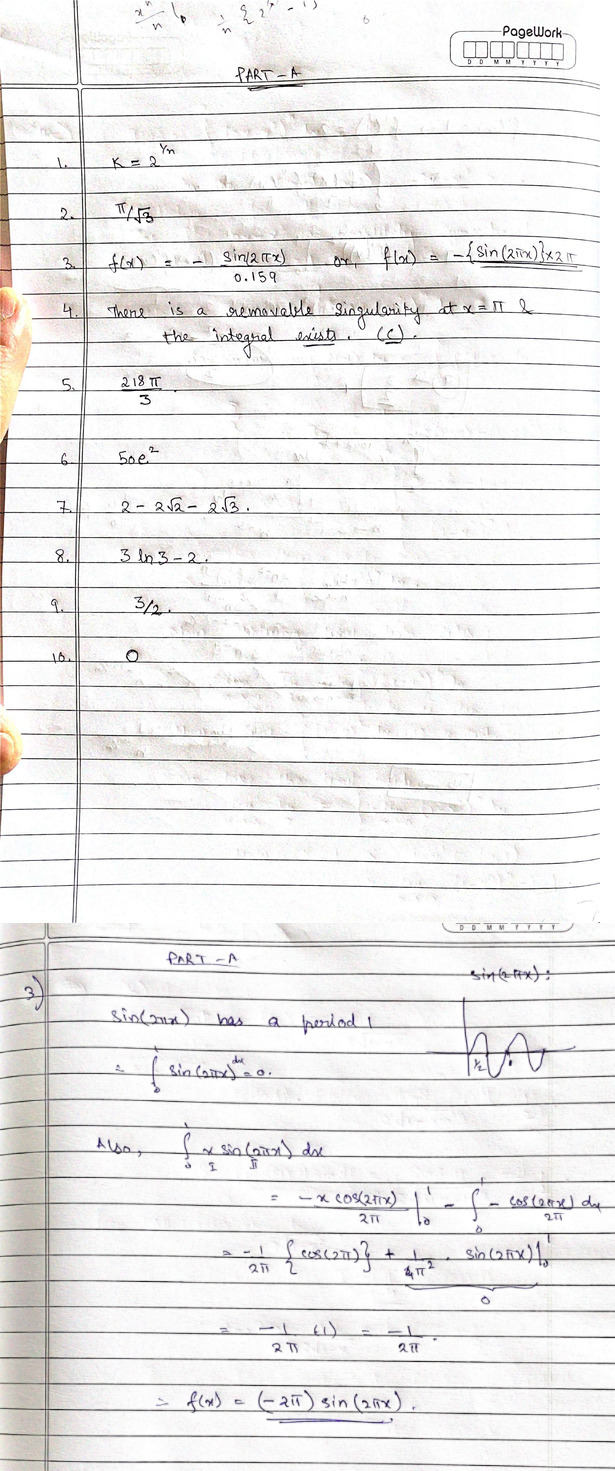 xⁿ/n 1/n {2ˣ - 1}
PageWork
D D M M Y Y Y Y
PART - A
1. K = 2^(1/n)
2. π/√3
3. f(x) = - sin(2πx)/0.159 or, f(x) = -{sin(2πx)}×2π
4. There is a removable singularity at x = π &
the integral exists. (C).
5. 218π/3.
6. 50e²
7. 2 - 2√2 - 2√3.
8. 3 ln 3 - 2.
9. 3/2.
10. 0
D D M M Y Y Y Y
PART - A
sin(2πx):
3)
sin(2πx) has a period 1
1/2
∴ ∫₀¹ sin(2πx) dx = 0.
Also, ∫₀¹ x sin(2πx) dx
I II
= -x cos(2πx)/2π |₀¹ - ∫₀¹ - cos(2πx)/2π dx
= -1/2π {cos(2π)} + 1/4π² · sin(2πx)|₀¹
0
= -1/2π (1) = -1/2π.
∴ f(x) = (-2π) sin(2πx).